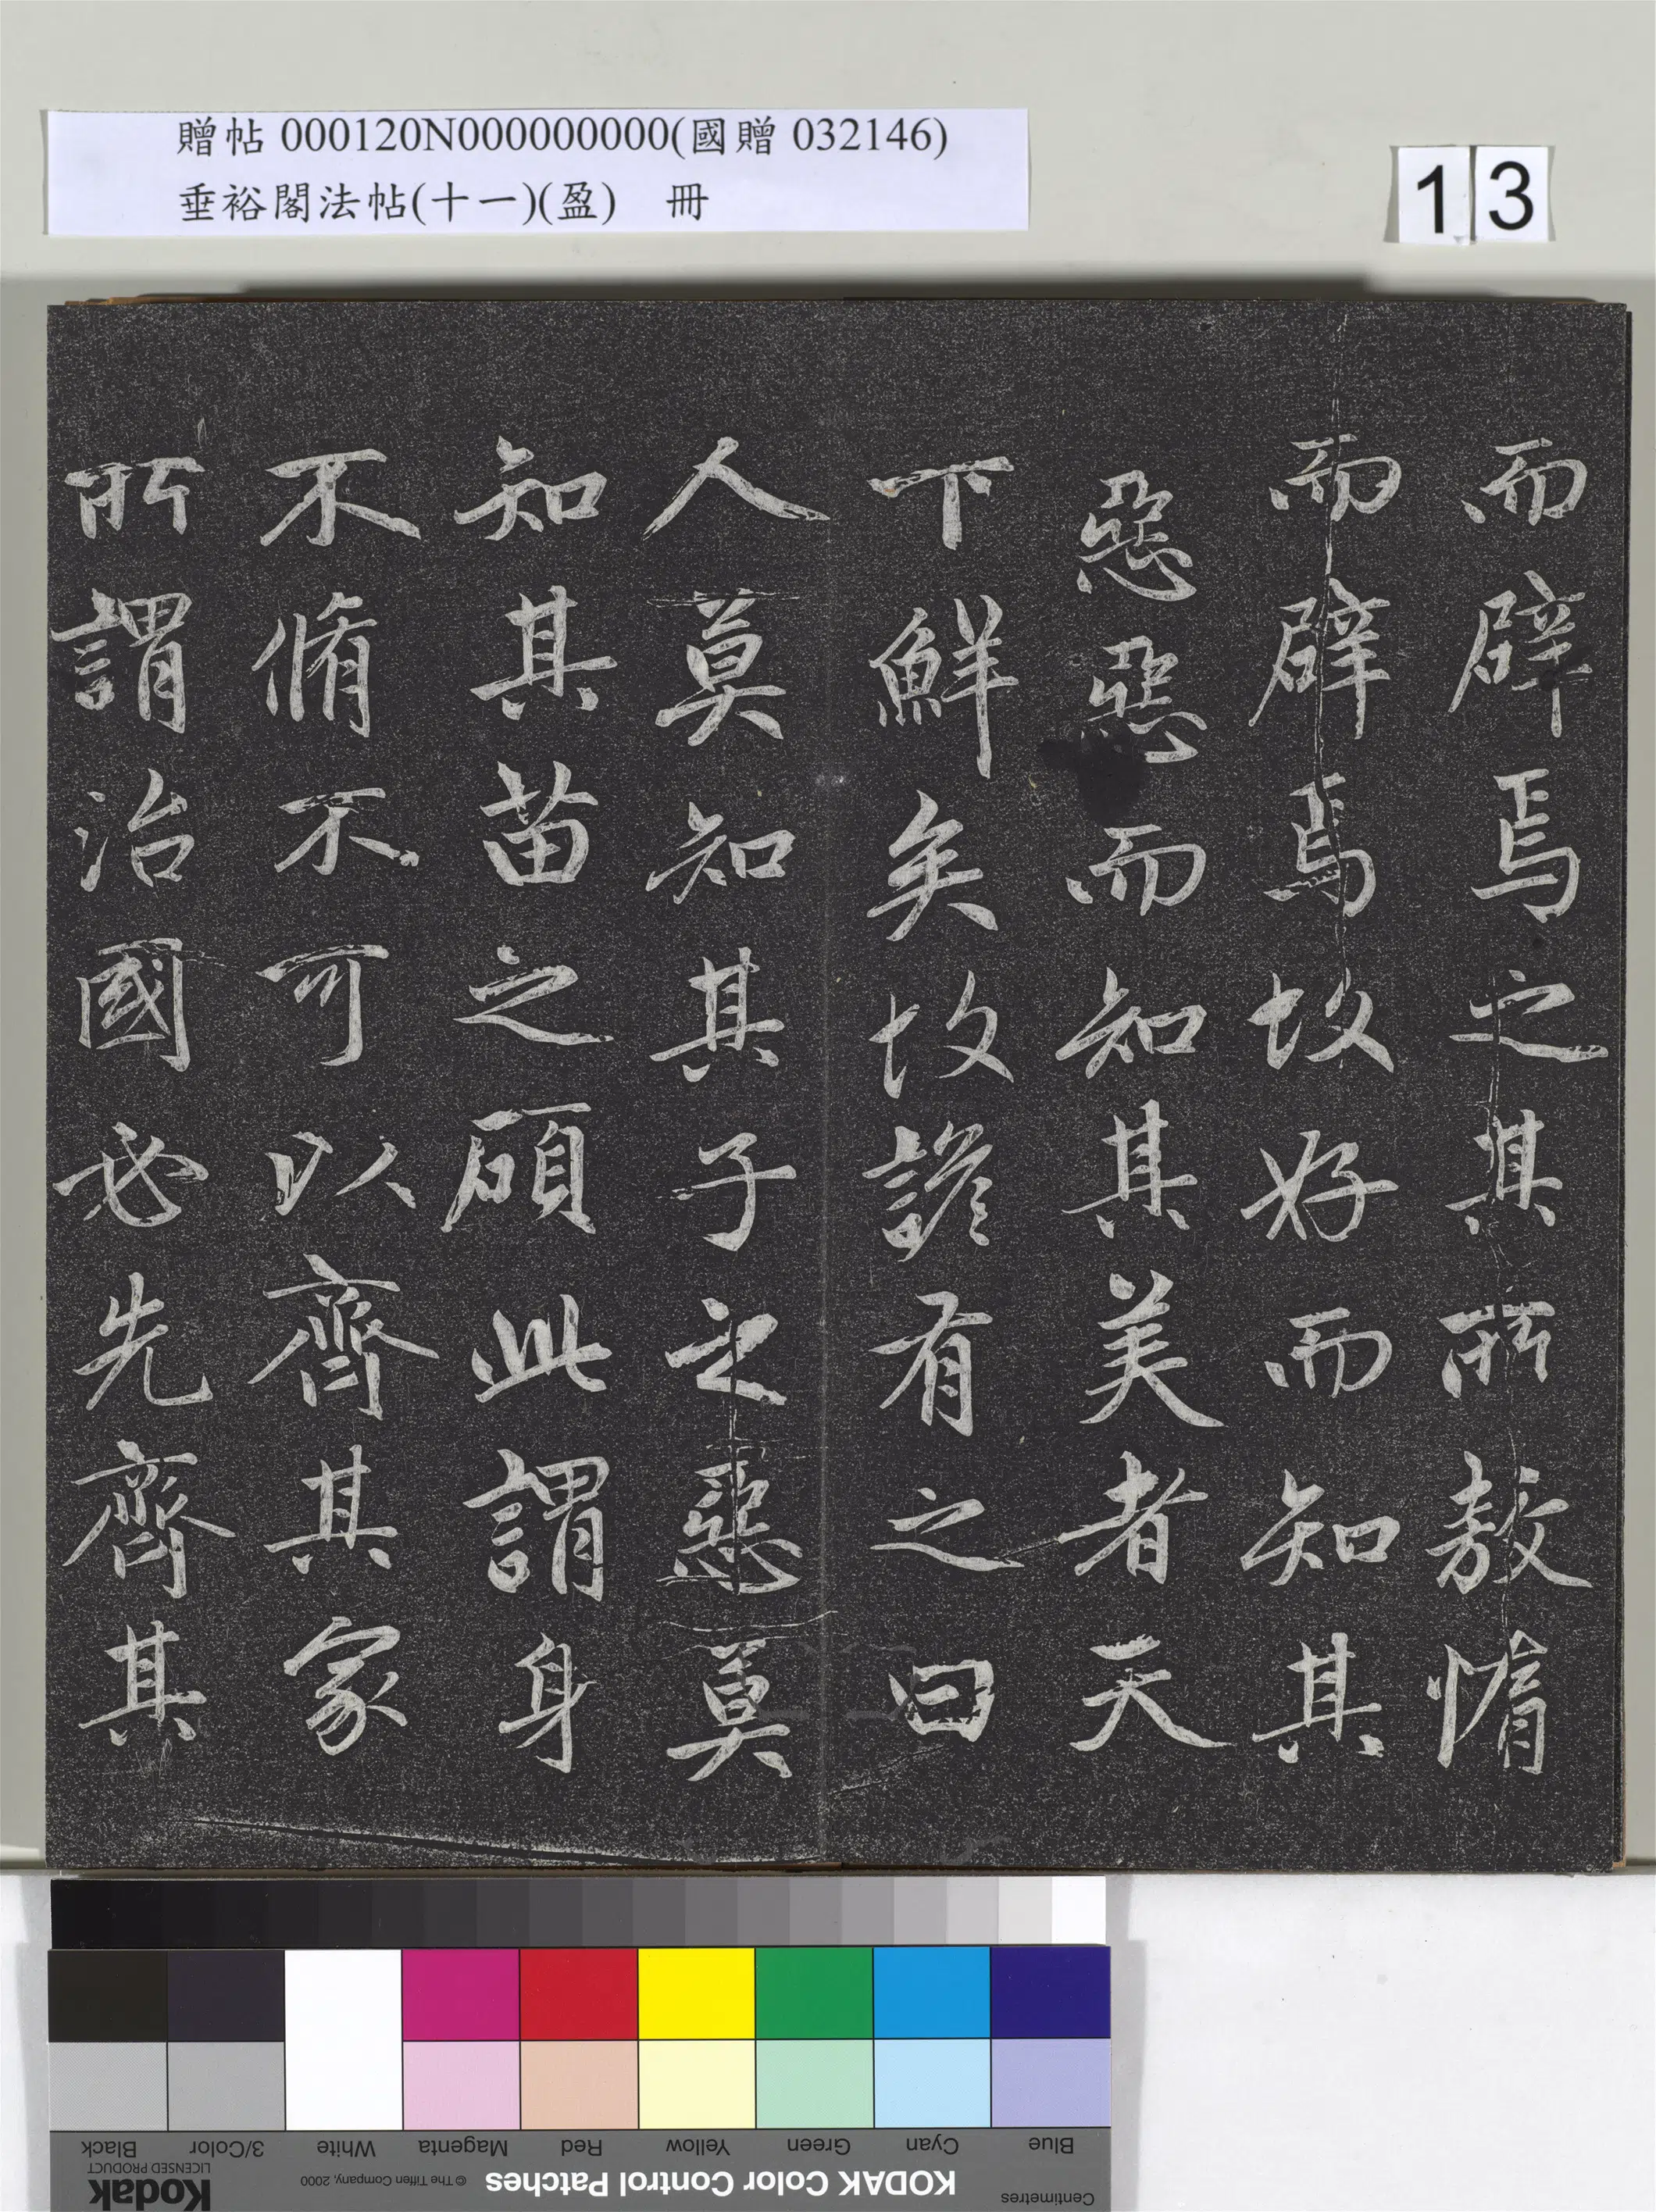 贈帖 000120N000000000(國贈 032146)
垂裕閣法帖(十一)(盈) 冊
13
而辟焉之其所敖惰
而辟焉故好而知其
惡惡而知其美者天
下鮮矣故諺有之曰
人莫知其子之惡莫
知其苗之碩此謂身
不脩不可以齊其家
所謂治國必先齊其
Blue
Cyan
Green
Yellow
Red
Magenta
White
3/Color
Black
Centimetres
KODAK Color Control Patches
© The Tiffen Company, 2000
Kodak
LICENSED PRODUCT